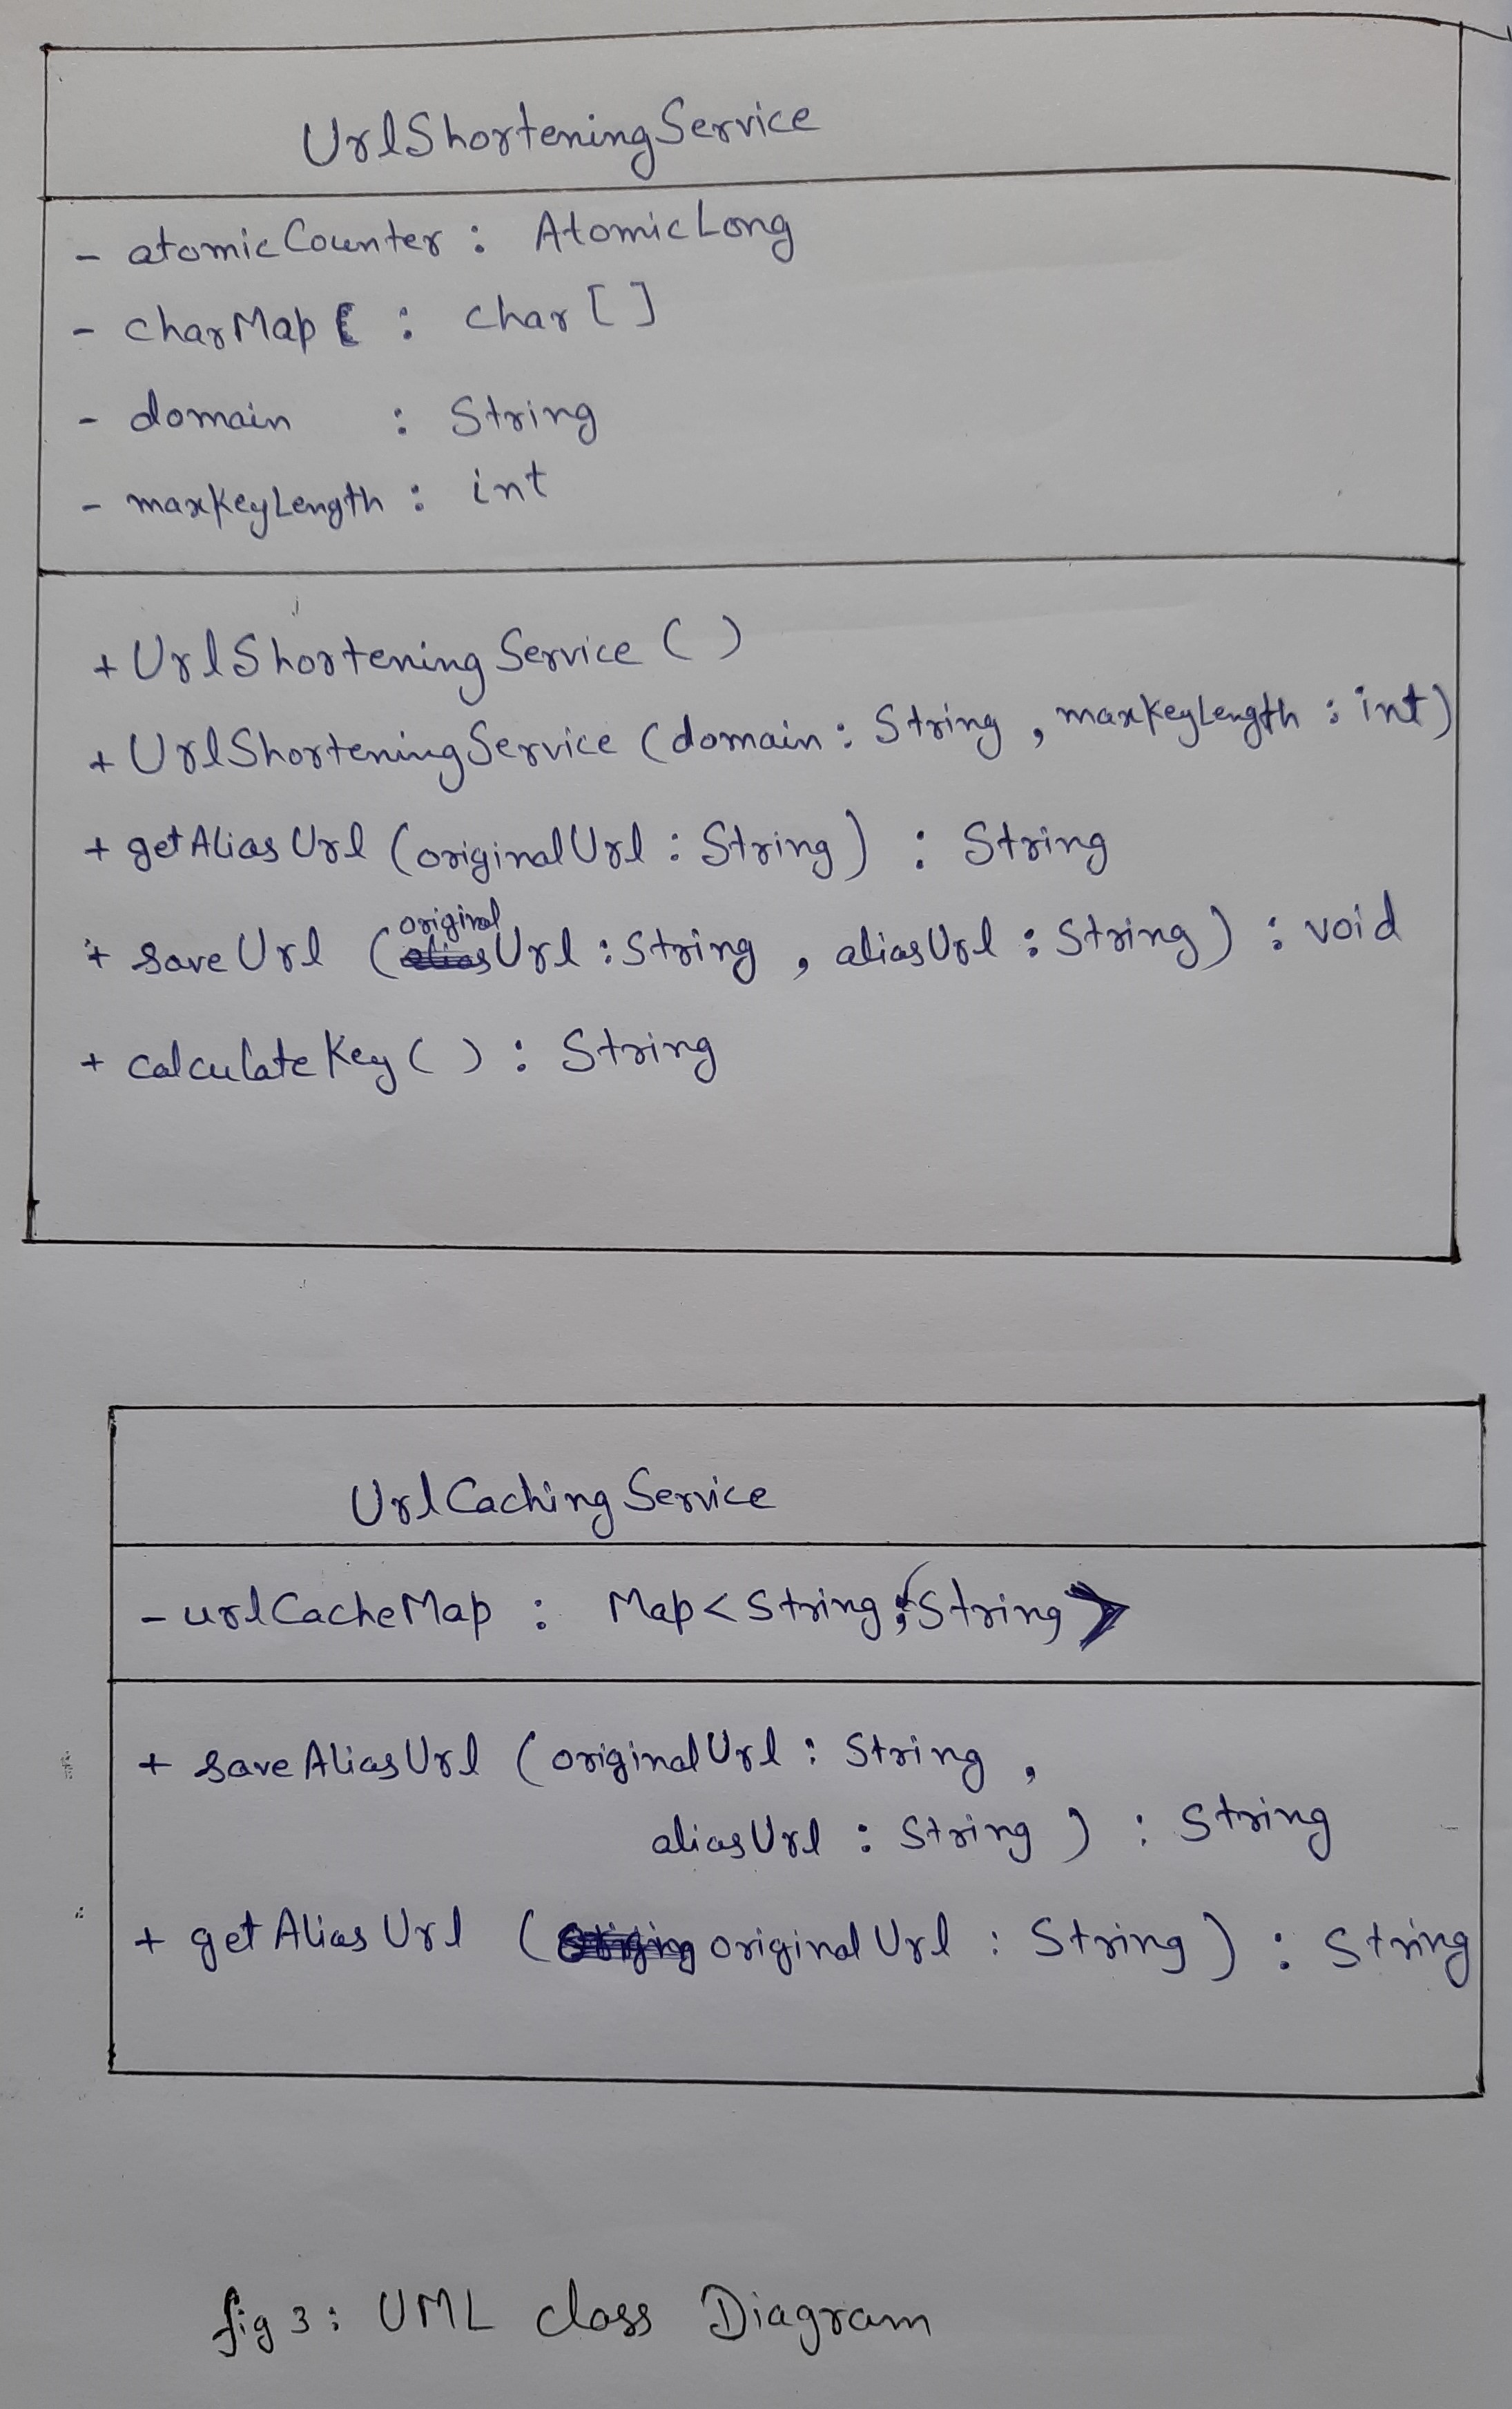 UrlShorteningService
- atomicCounter : AtomicLong
- charMap : char []
- domain : String
- maxKeyLength : int
+ UrlShorteningService ( )
+ UrlShorteningService (domain : String , maxKeyLength : int)
+ getAliasUrl (originalUrl : String) : String
+ saveUrl (originalUrl : String , aliasUrl : String) : void
+ calculateKey ( ) : String
UrlCachingService
- urlCacheMap : Map<String, String>
+ saveAliasUrl (originalUrl : String ,
aliasUrl : String ) : String
+ getAliasUrl (originalUrl : String ) : String
fig 3 : UML class Diagram